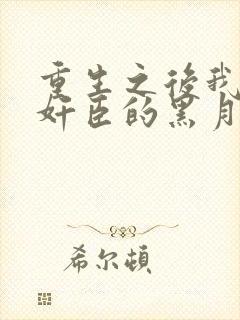 重生之后我
奸臣的黑月
希尔顿